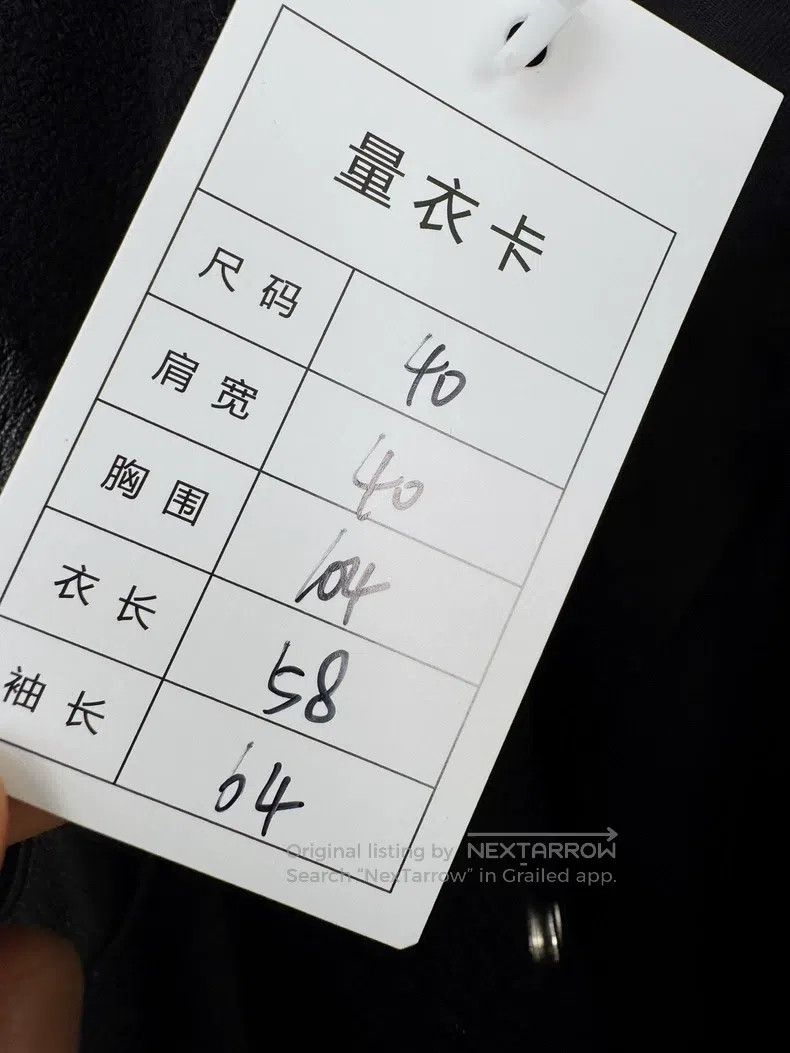 量衣卡
尺码 40
肩宽 40
胸围 104
衣长 58
袖长 64
Original listing by NEXTARROW
Search "NexTarrow" in Grailed app.